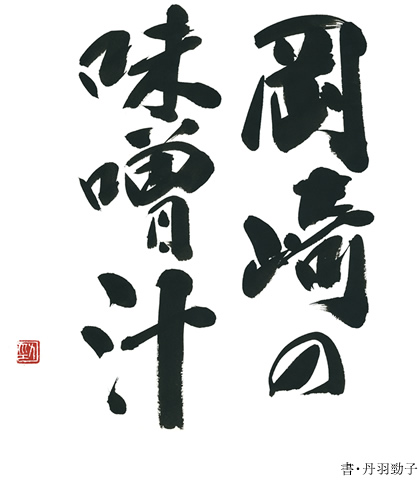 岡崎の
味噌汁
勁
書・丹羽勁子